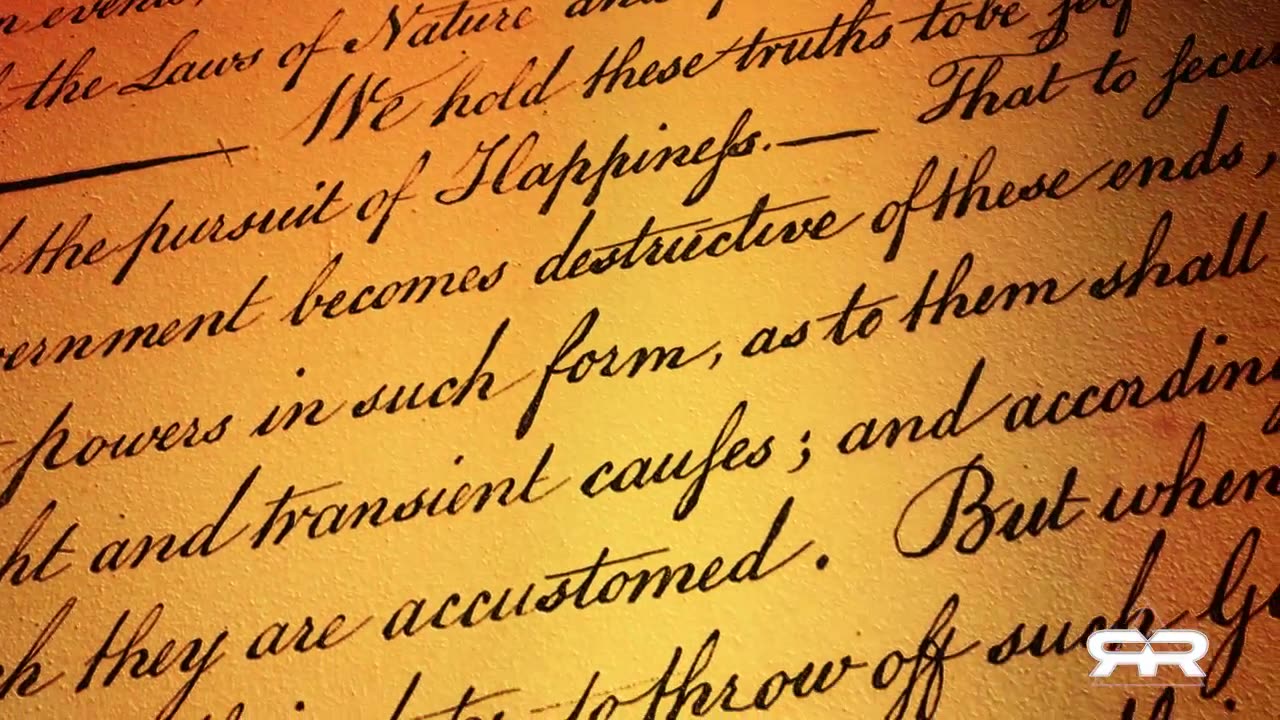 n events,
the Laws of Nature and
We hold these truths tobe self
the pursuit of Happineſs.— That to ſecu
vernment becomes destructive of these ends,
powers in such form, as to them shall
ht and transient cauſes; and according
ch they are accustomed. But when
to throw off such Go
RR